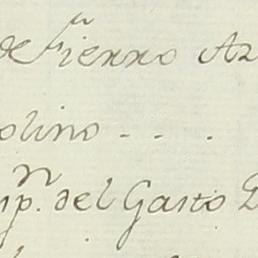 de Fierro Az
olino - - .
np.n del Gasto D